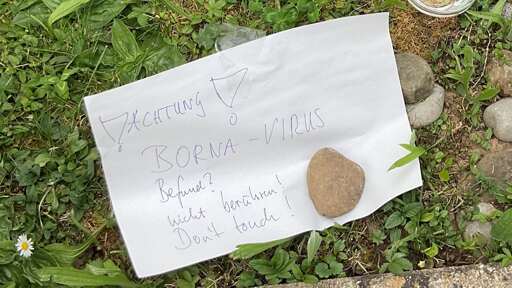 ACHTUNG
BORNA-VIRUS
Befund?
nicht berühren!
Don't touch!